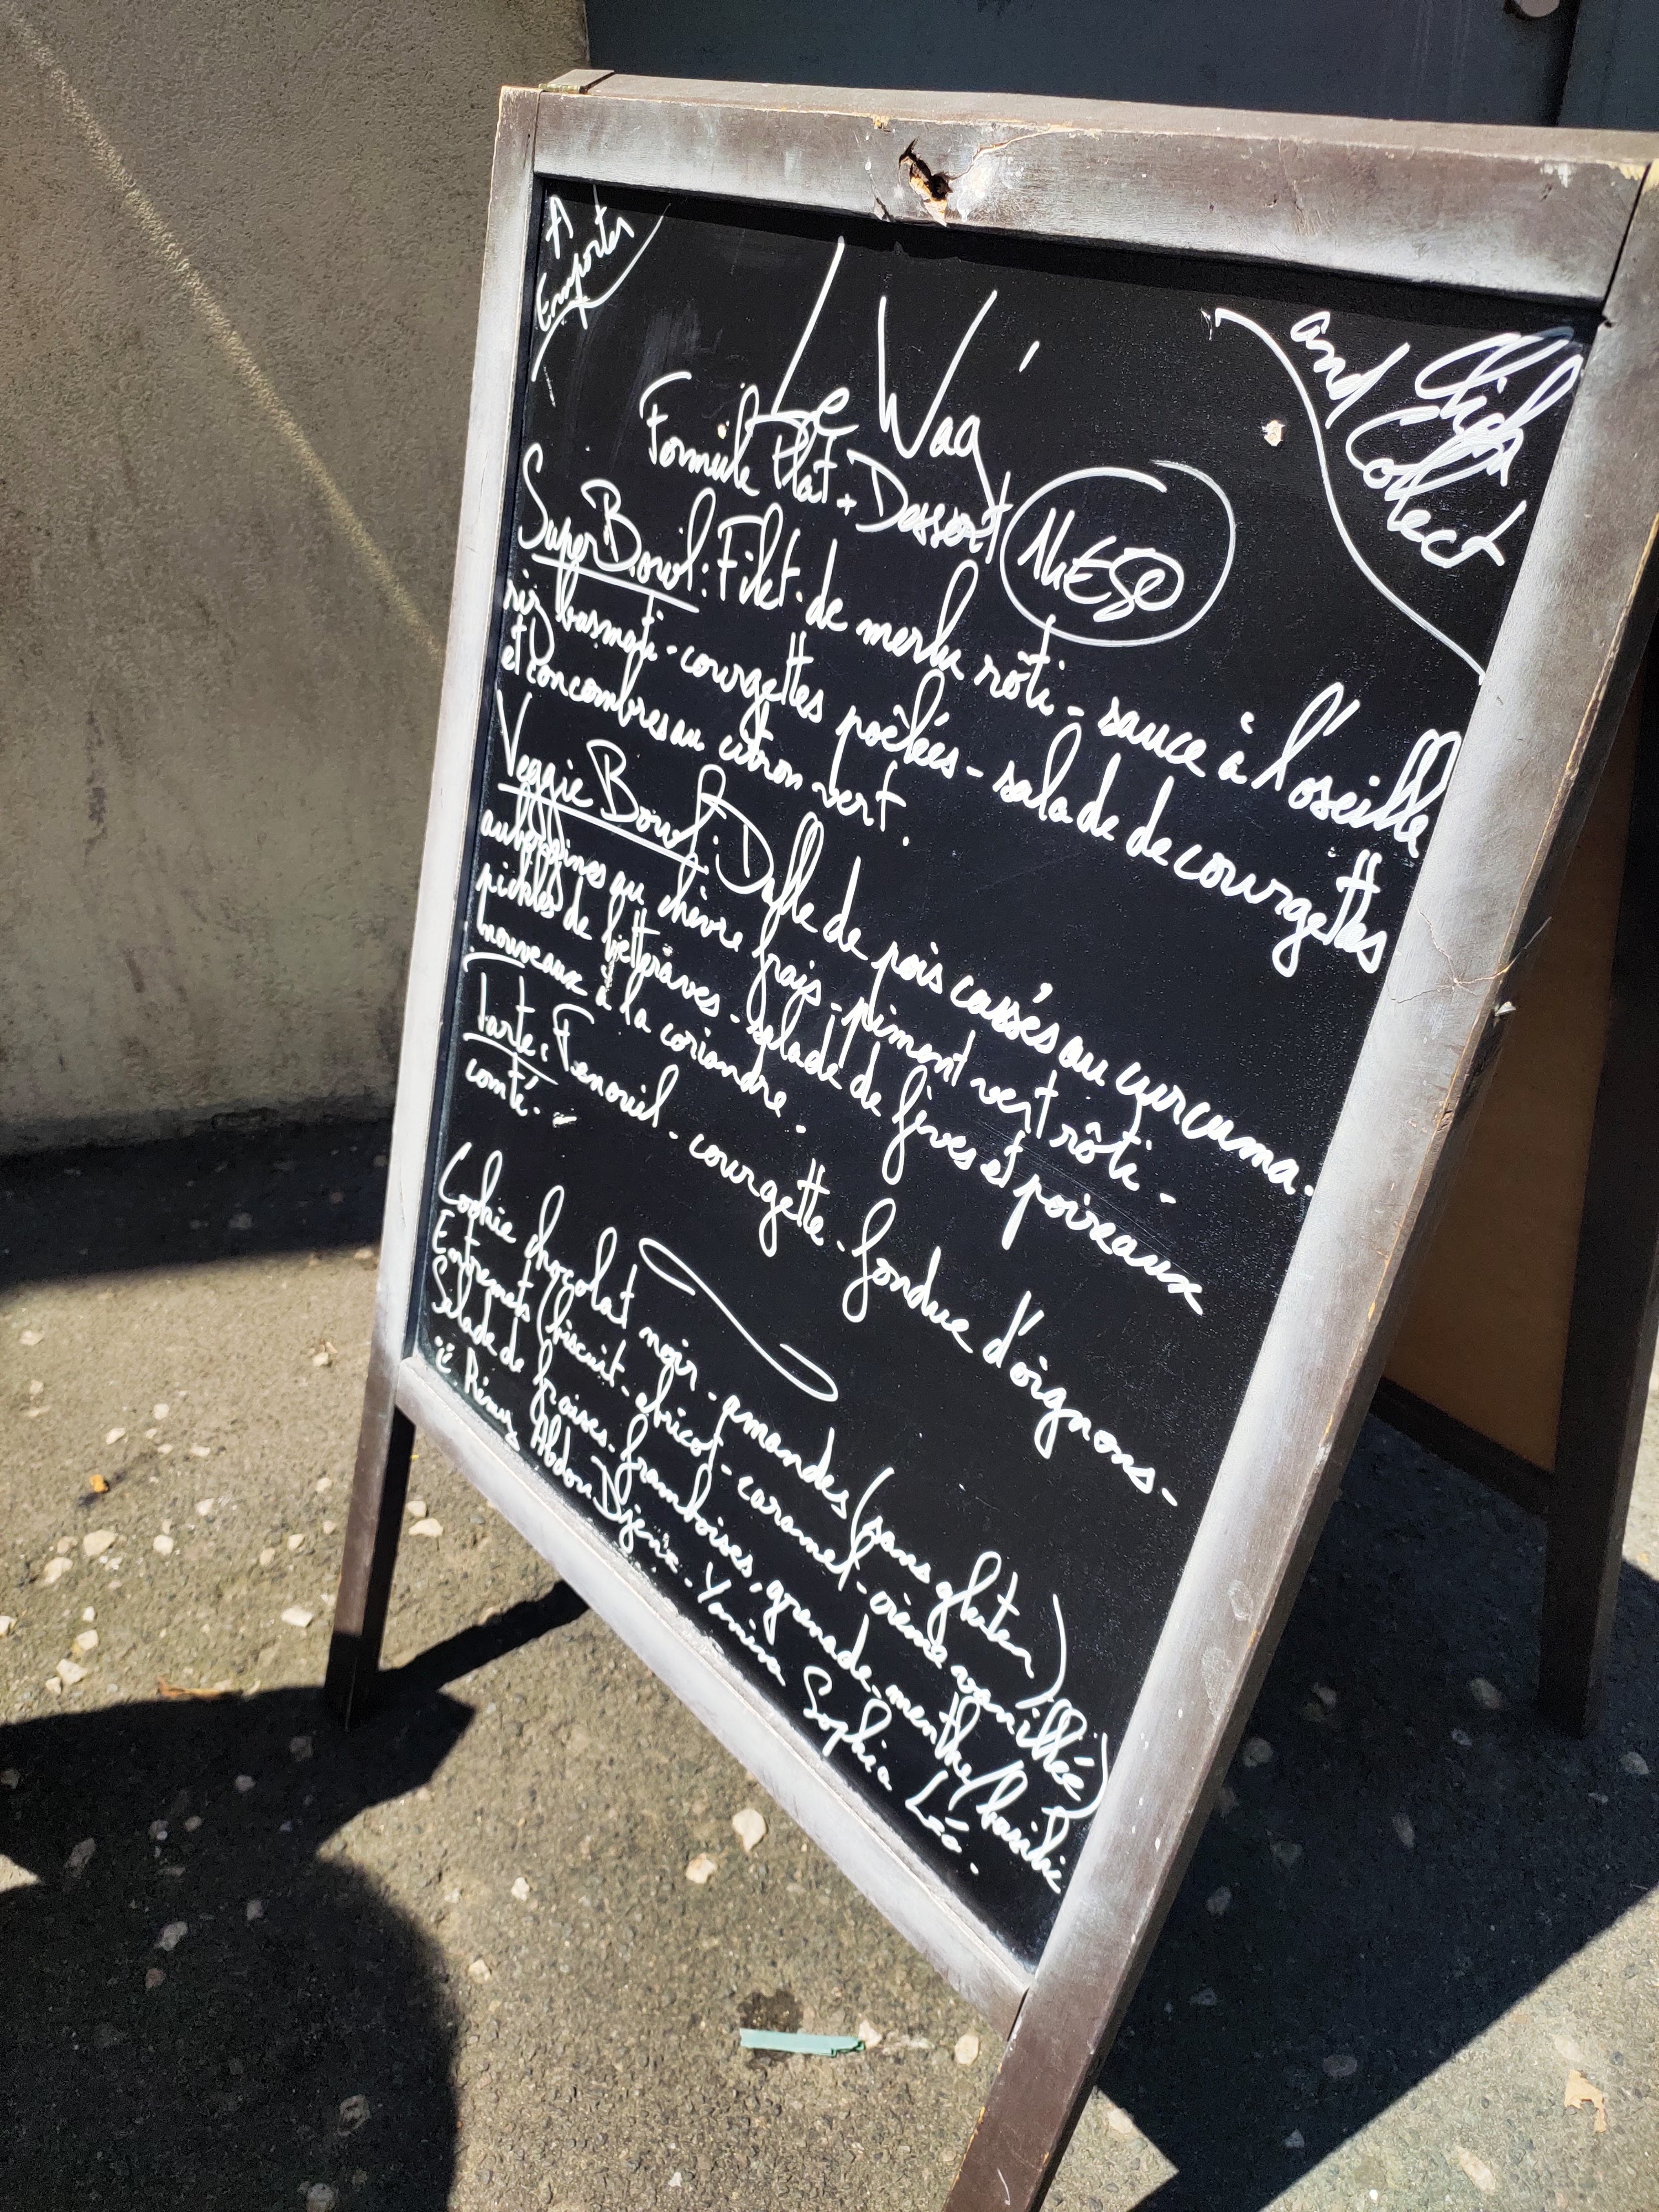 A
Emporter
Click
and Collect
Le Wag'
Formule Plat + Dessert 14€50
Super Bowl : Filet de merlu rôti - sauce à l'oseille
riz basmati - courgettes poêlées - salade de courgettes
et concombres au citron vert.
Veggie Bowl : Dalle de pois cassés au curcuma.
aubergines au chèvre frais - piment vert rôti -
pickles de betteraves - salade de fèves et poireaux
nouveaux à la coriandre -
Tarte : Fenouil - courgette - fondue d'oignons -
comté.
Cookie chocolat noir - amandes (sans gluten)
Entremets (biscuit - abricot - caramel - crème vanillée)
Salade de fraises - framboises, grenade, menthe/basilic
Rémy Abdou Yanina Sophia Léo.